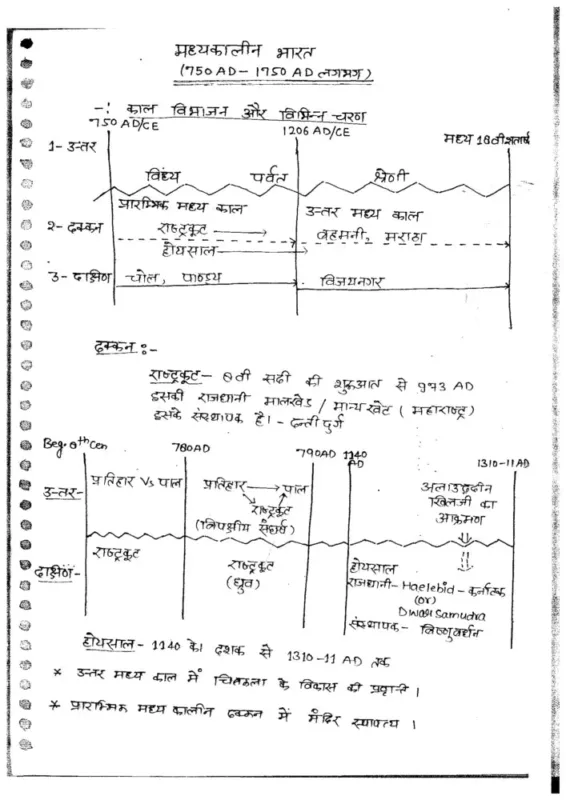 मध्यकालीन भारत
(750 AD - 1750 AD लगभग)
-: काल विभाजन और विभिन्न चरण
750 AD/CE 1206 AD/CE मध्य 18वी शताब्दी
1- उत्तर
विंध्य पर्वत श्रेणी
प्रारम्भिक मध्य काल उत्तर मध्य काल
2- दक्कन राष्ट्रकूट → वहमनी, मराठा
होयसाल →
3- दक्षिण चोल, पाण्ड्य विजयनगर
दक्कन :-
राष्ट्रकूट- 8वी सदी की शुरुआत से 993 AD
इसकी राजधानी मालखेड / मान्यखेट (महाराष्ट्र)
इसके संस्थापक है। - दन्तीदुर्ग
Beg. 8th Cen 780AD 790AD 1140 AD 1310-11 AD
उत्तर- प्रतिहार Vs पाल प्रतिहार → पाल अलाउद्दीन
राष्ट्रकूट खिलजी का
(त्रिपक्षीय संघर्ष) आक्रमण
राष्ट्रकूट राष्ट्रकूट होयसाल
दक्षिण- (ध्रुव) राजधानी- Haelebid - कर्नाटक
(or)
Dwar Samudra
संस्थापक - विष्णुवर्धन
होयसाल - 1140 के दशक से 1310-11 AD तक
* उत्तर मध्य काल में चित्रकला के विकास की प्रवृत्ति।
* प्रारम्भिक मध्य कालीन दक्कन में मंदिर स्थापत्य।